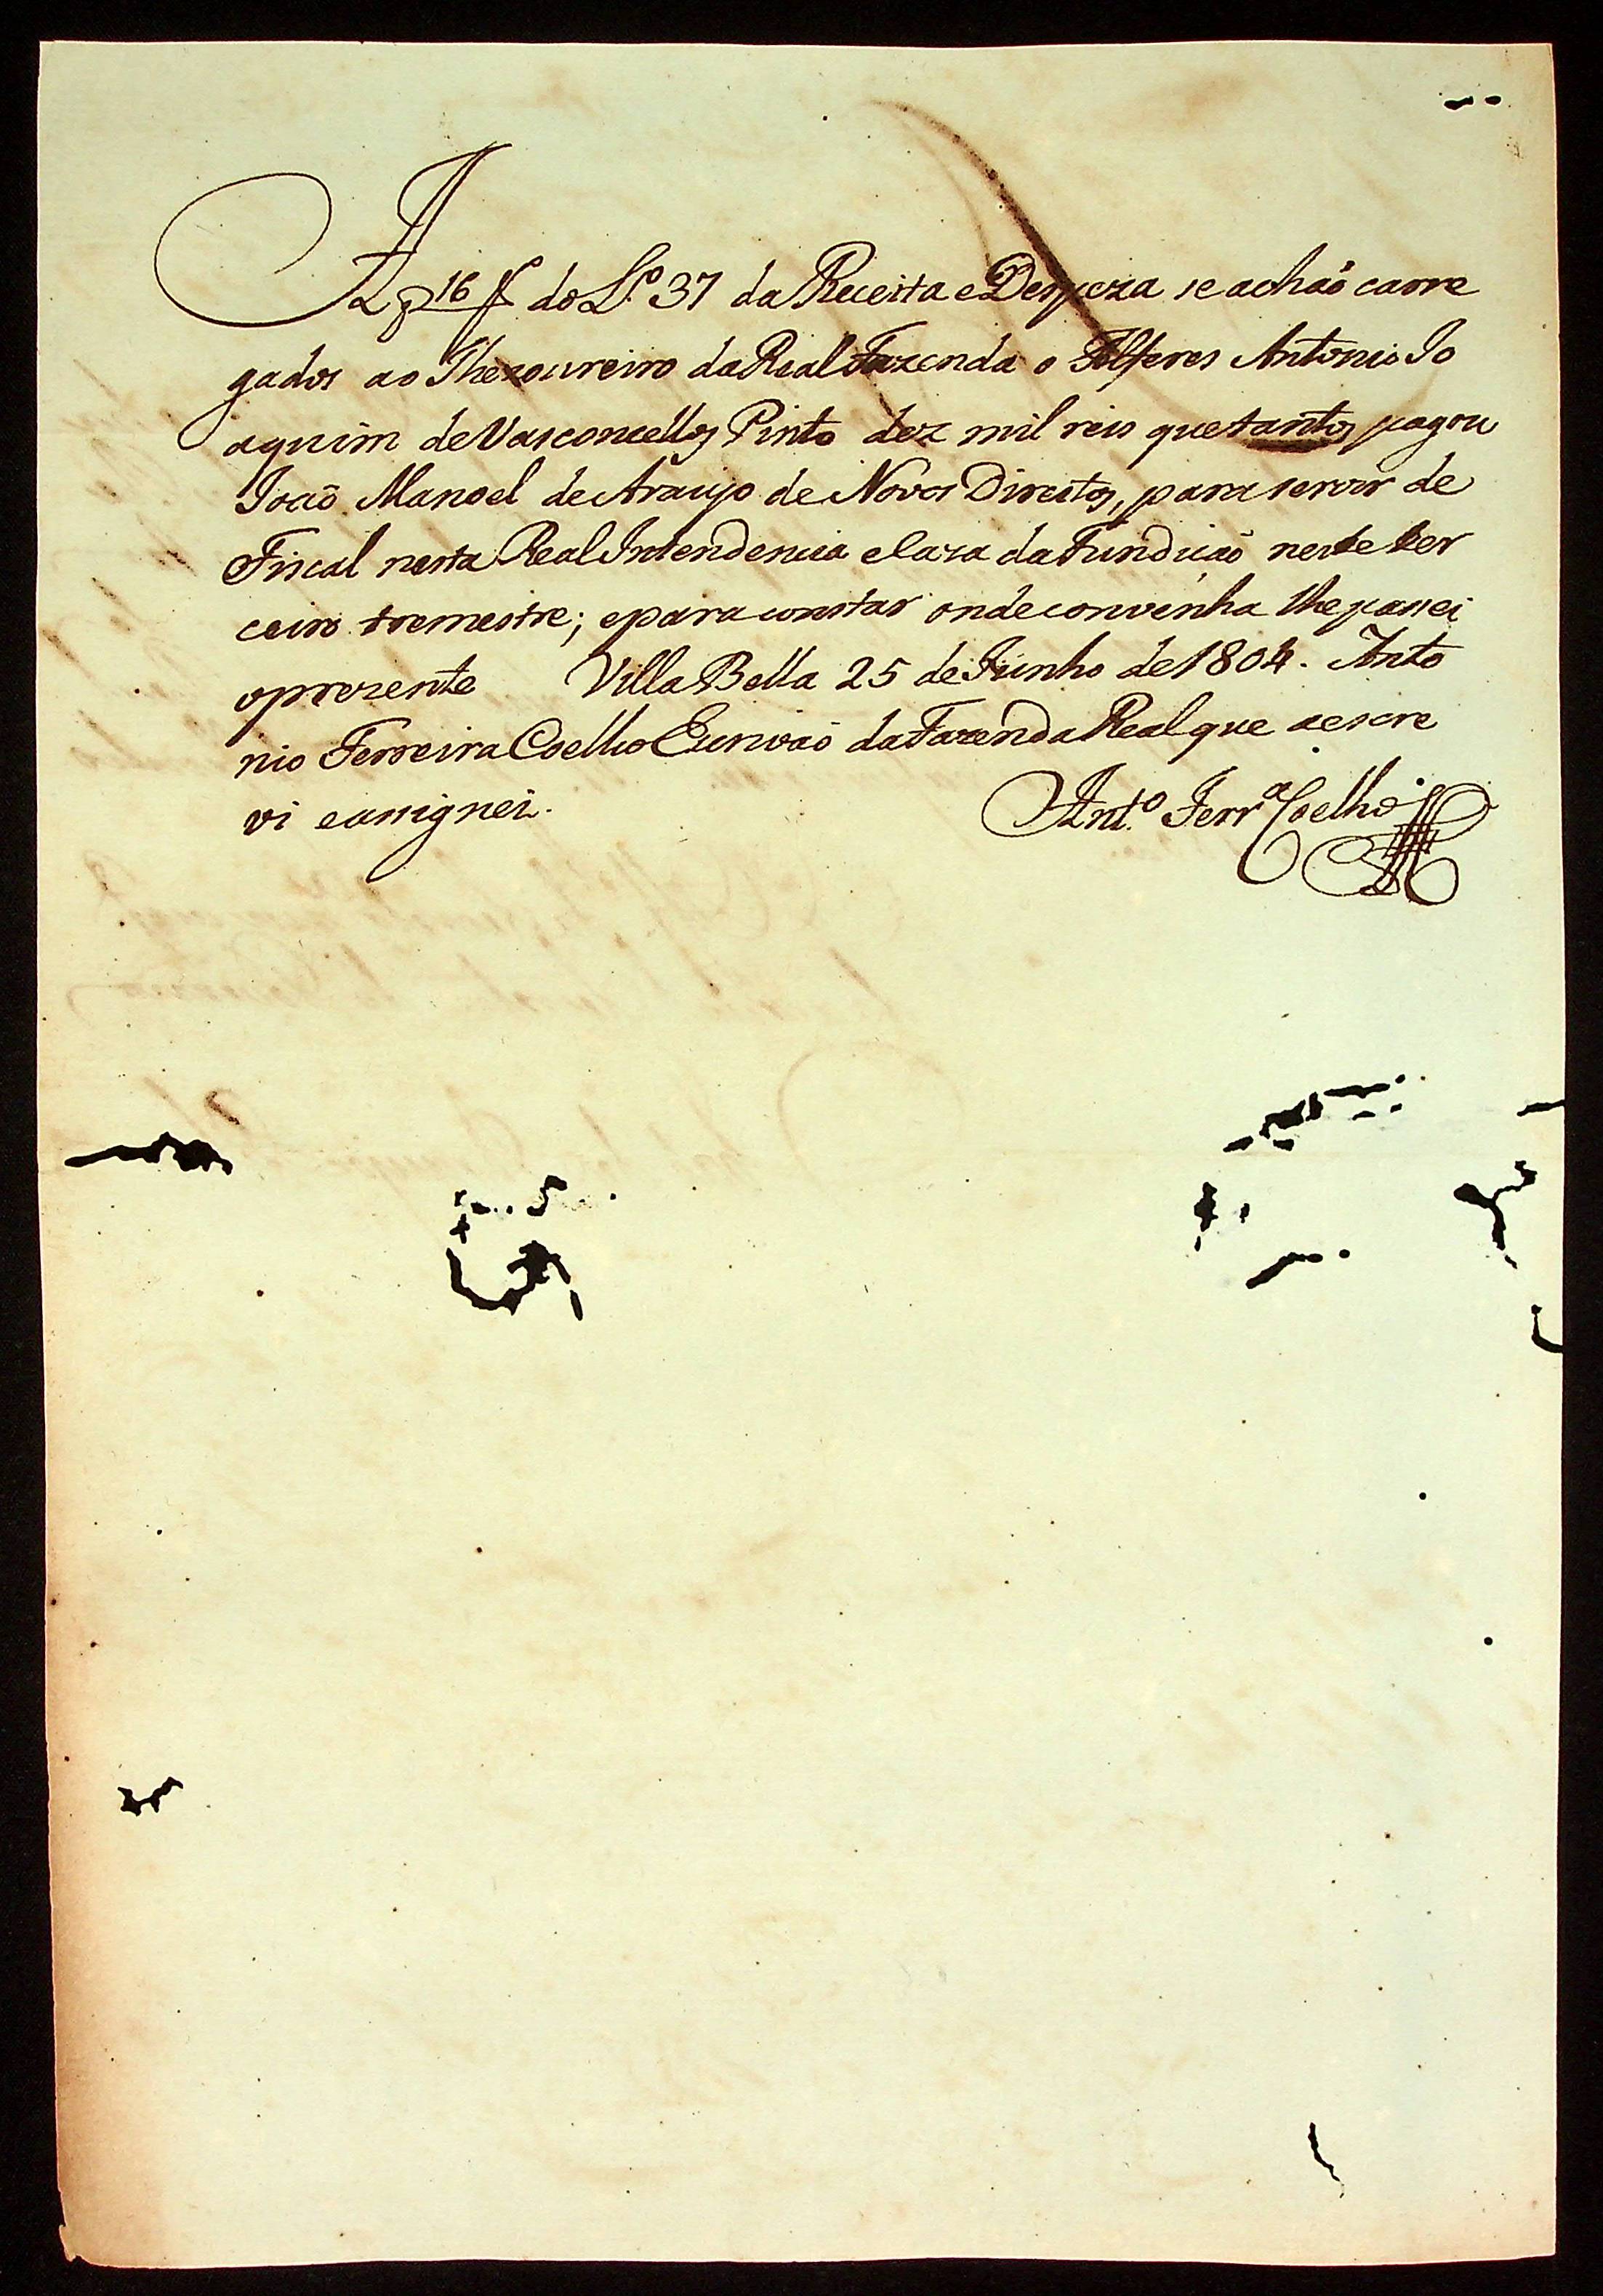 A f 16 f do L.º 37 da Receita e Despeza se achaõ carre
gados ao Thezoureiro da Real Fazenda o Alferes Antonio Jo
aquim de Vasconcellos Pinto dez mil reis que tantos pagou
Joaõ Manoel de Araujo de Novos Direitos, para servir de
Fiscal nesta Real Intendencia e Caza da Fundicaõ neste ter
ceiro tremestre; e para constar onde convenha lhe passei
o prezente Villa Bella 25 de Junho de 1804. Anto
nio Ferreira Coelho Escrivaõ da Fazenda Real que a escre
vi e assignei.
Ant.º Ferrª Coelho